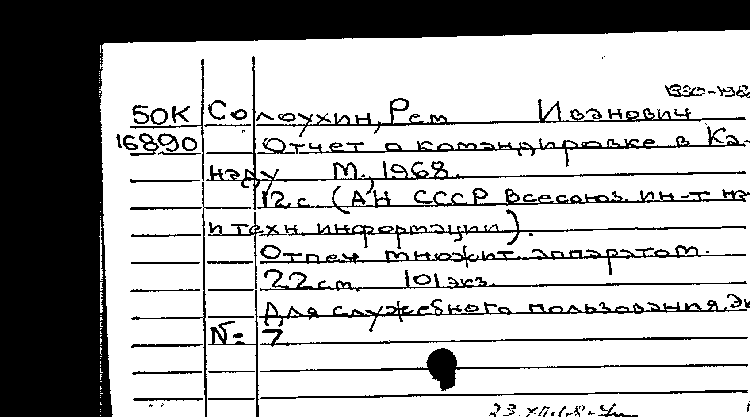 1930-1968
50К Солоухин, Рем Иванович
16890 Отчет о командировке в Ка-
наду. М., 1968.
12 с. (АН СССР Всесоюз. ин-т на
и техн. информации).
Отпеч. множит. аппаратом.
22 см. 101 экз.
Для служебного пользования. Эк
№ 7